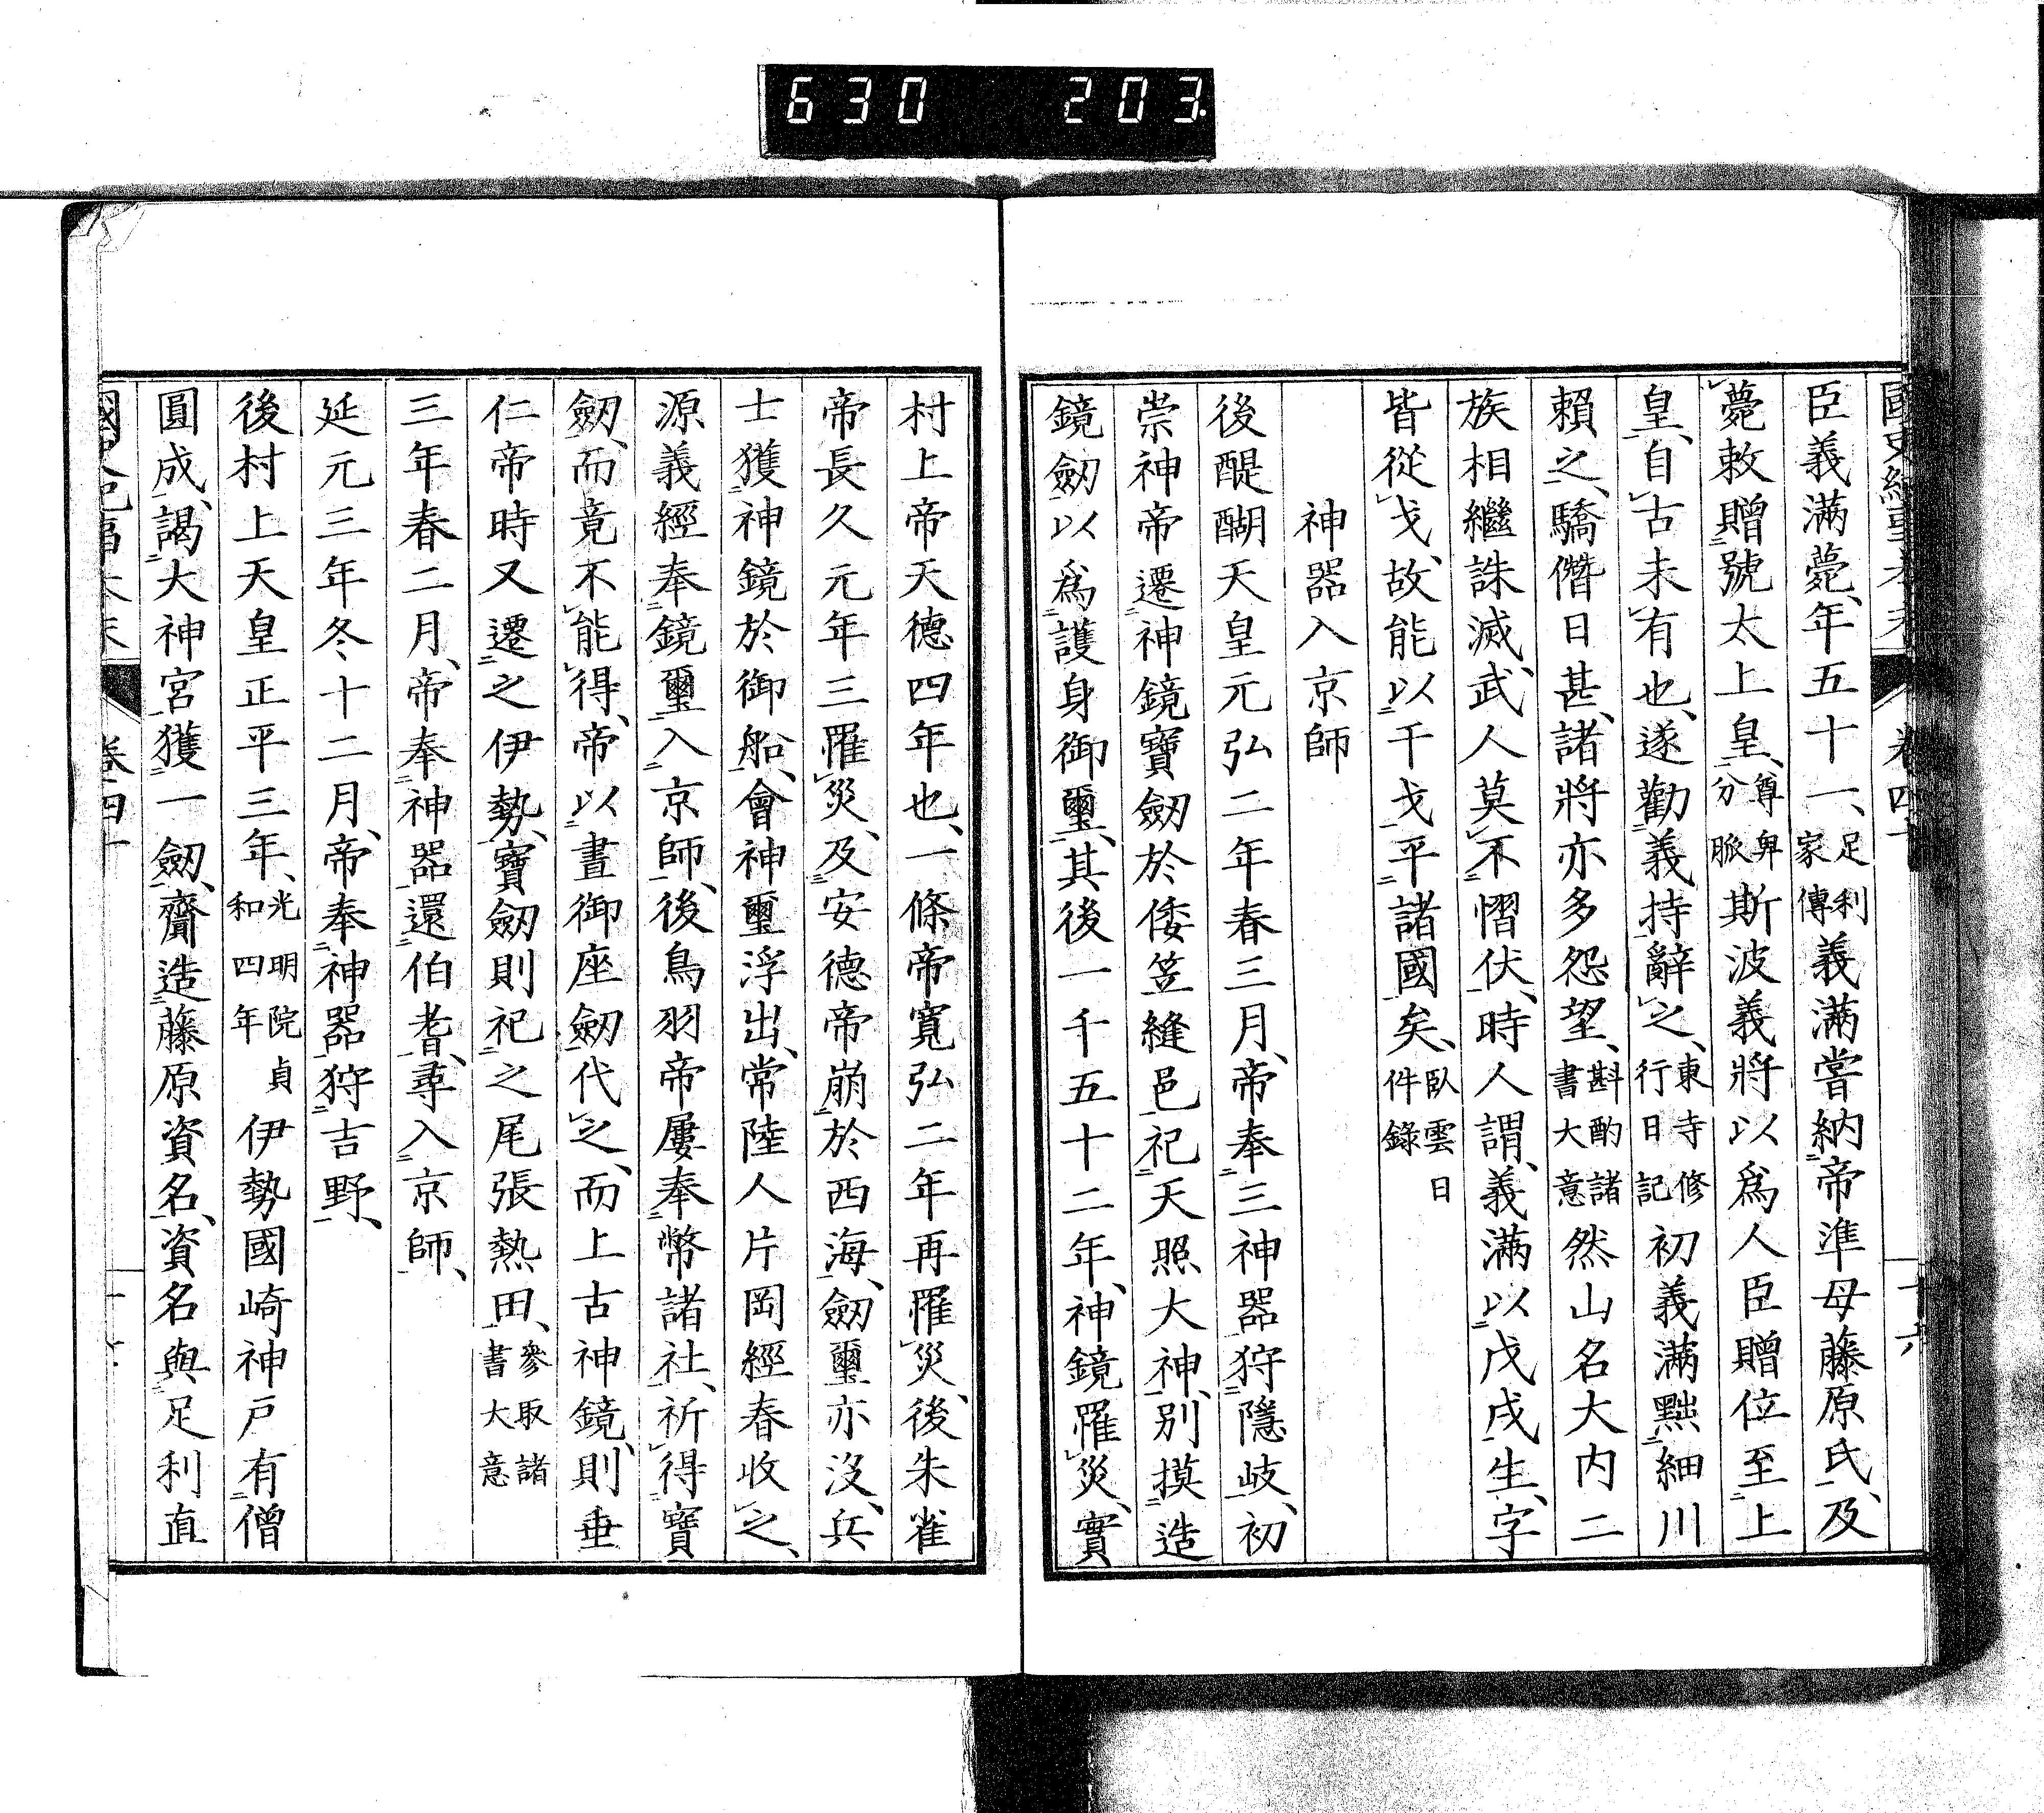 630 203.
臣義滿薨、年五十一、足利家傳義滿嘗納帝準母藤原氏、及
薨敕贈號太上皇、尊卑分脈斯波義將以爲人臣贈位至上
皇、自古未有也、遂勸義持辭之、東寺修行日記初義滿黜細川
賴之、驕僭日甚、諸將亦多怨望、斟酌諸書大意然山名大内二
族相繼誅滅、武人莫不慴伏、時人謂、義滿以戊戌生、字
皆從戈、故能以干戈平諸國矣、臥雲日件錄
神器入京師
後醍醐天皇元弘二年春三月、帝奉三神器狩隱歧、初
崇神帝遷神鏡寶劒於倭笠縫邑祀天照大神、別摸造
鏡劒以爲護身御璽、其後一千五十二年、神鏡罹災、實
村上帝天德四年也、一條帝寬弘二年再罹災、後朱雀
帝長久元年三罹災、及安德帝崩於西海、劒璽亦沒、兵
士獲神鏡於御船、會神璽浮出、常陸人片岡經春收之、
源義經奉鏡璽入京師、後鳥羽帝屢奉幣諸社、祈得寶
劒、而竟不能得、帝以晝御座劒代之、而上古神鏡、則垂
仁帝時又遷之伊勢、寶劒則祀之尾張熱田、參取諸書大意
三年春二月、帝奉神器還伯耆、尋入京師、
延元三年冬十二月、帝奉神器狩吉野、
後村上天皇正平三年、光明院貞和四年伊勢國崎神戸有僧
圓成、謁大神宮獲一劒、齎造藤原資名、資名與足利直